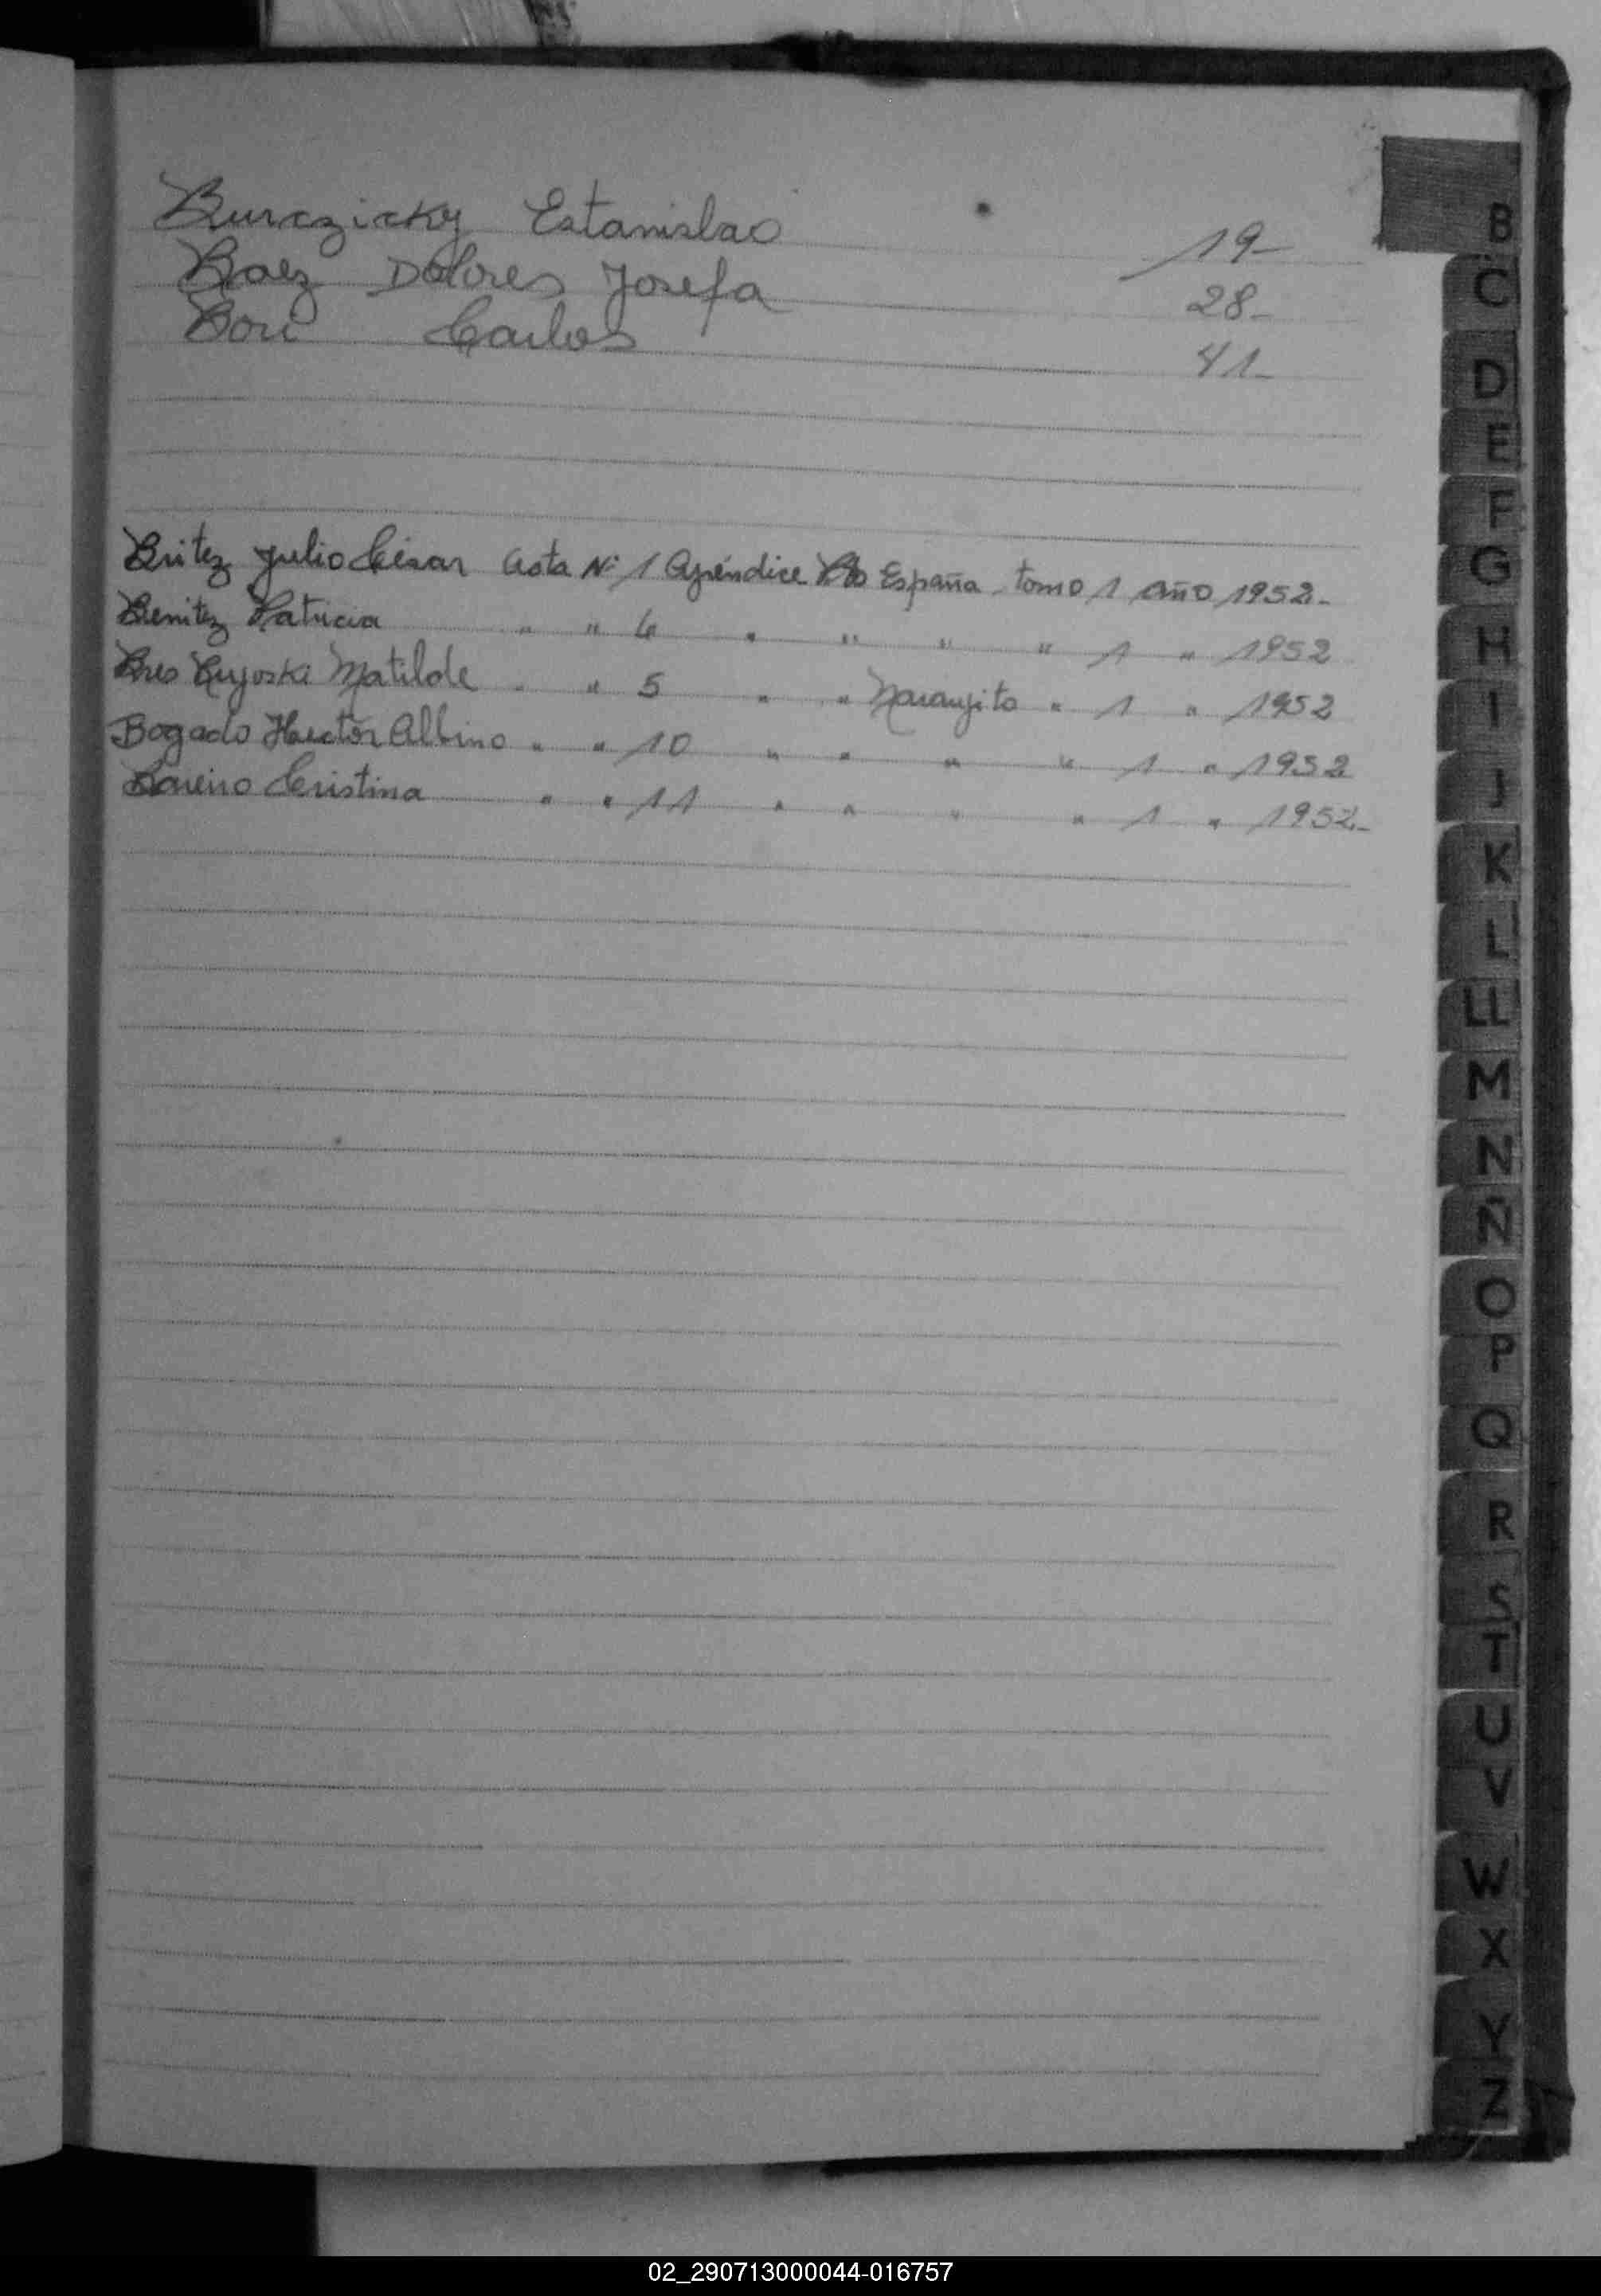 Burczicky Estanislao 19-
Baez Dolores Josefa 28-
Bori Carlos 41-
Britez Julio César Acta Nº 1 Apéndice Pto España tomo 1 Año 1952-
Benitez Patricia " " 4 " " " " 1 " 1952
Matilde " " 5 " " Naranjito " 1 " 1952
Bogado Hector Albino " " 10 " " " " 1 " 1952
Bareiro Cristina " " 11 " " " " 1 " 1952-
B
C
D
E
F
G
H
I
J
K
L
LL
M
N
Ñ
O
P
Q
R
S
T
U
V
W
X
Y
Z
02_290713000044-016757